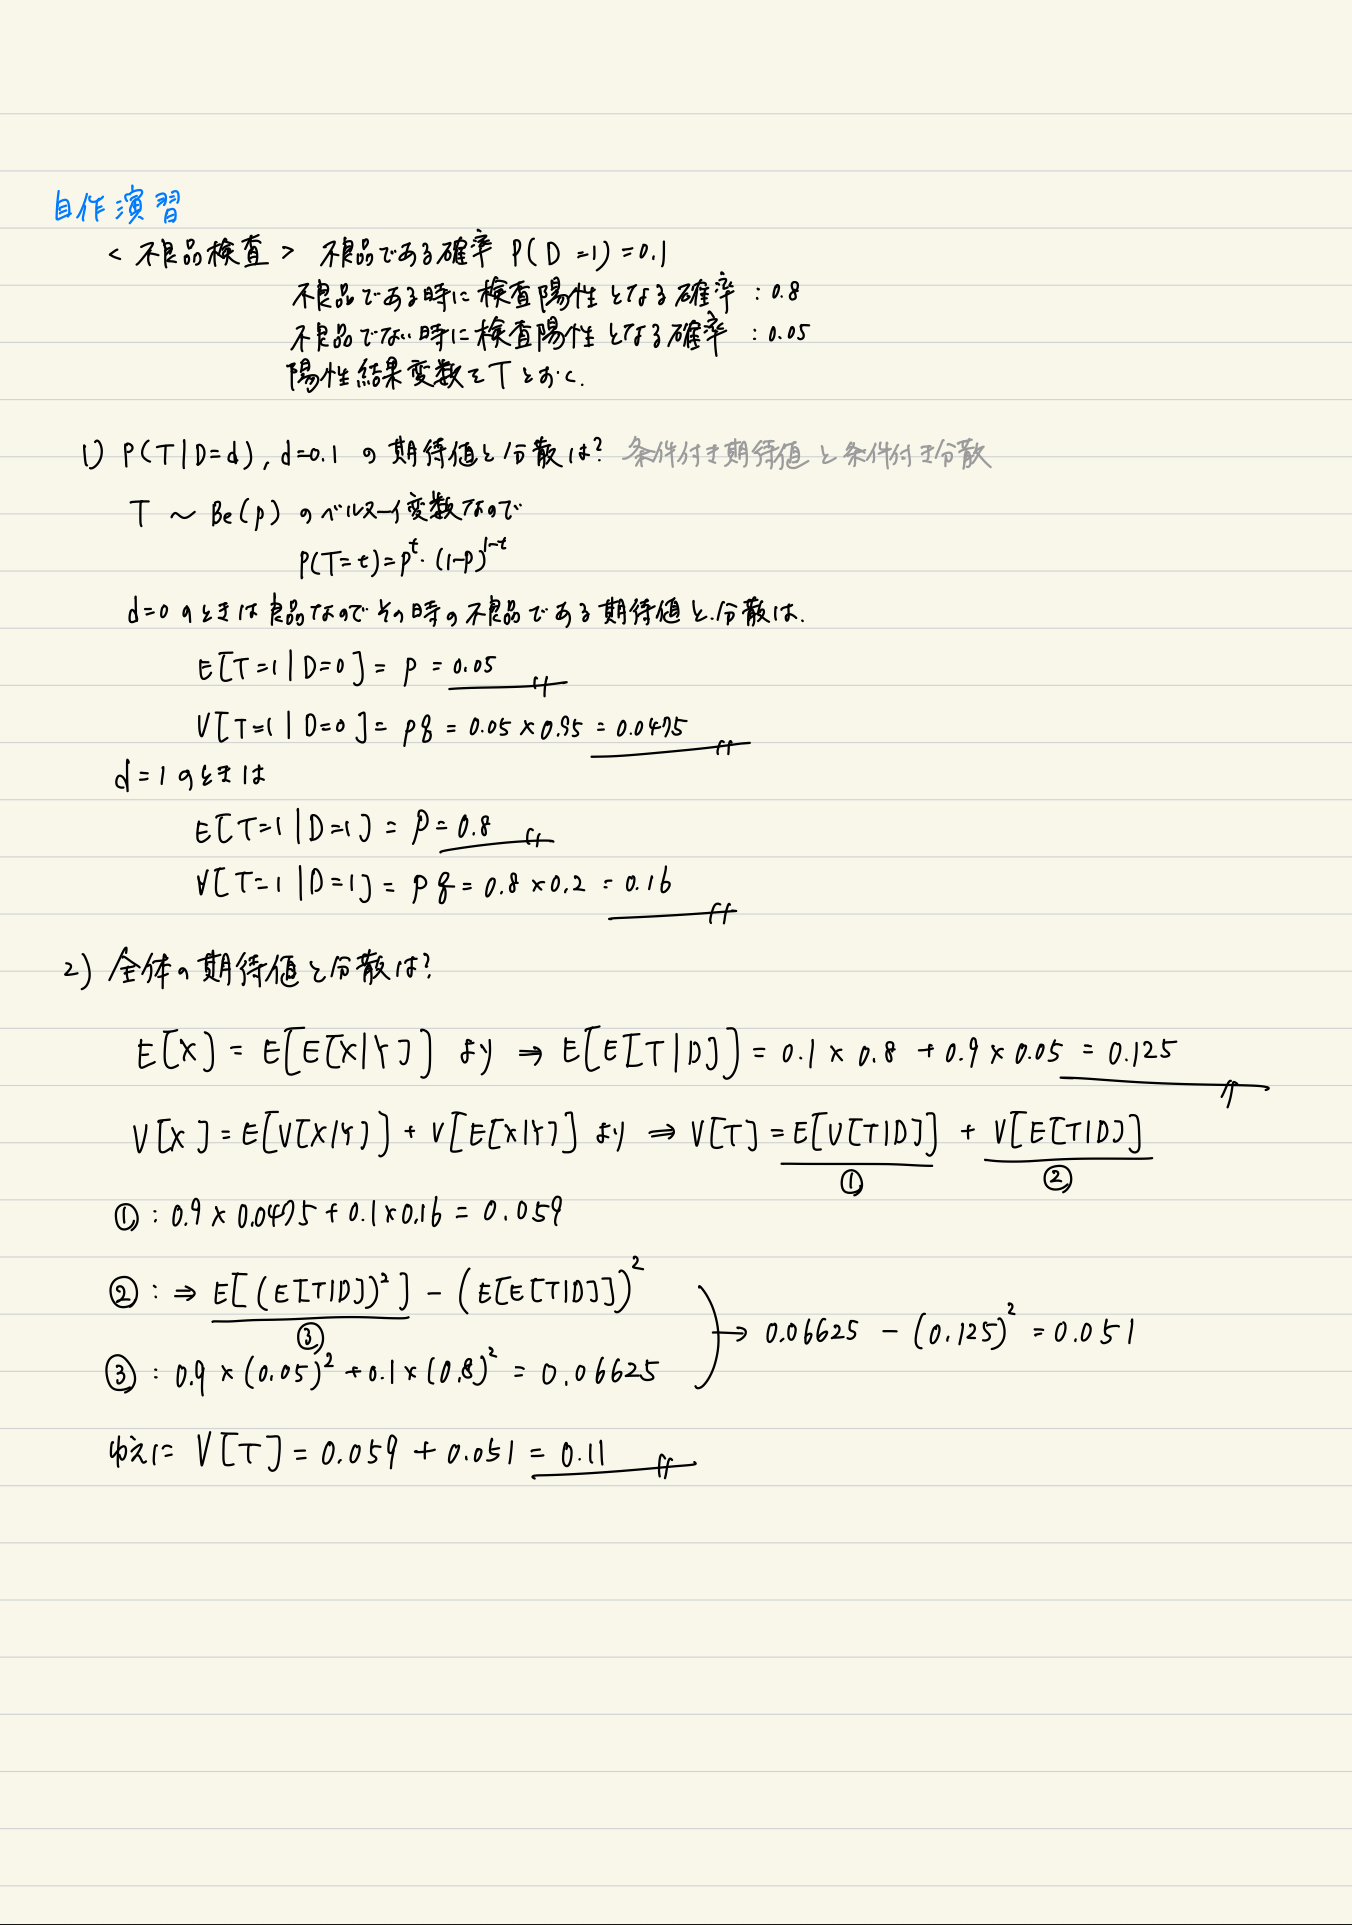 自作演習
<不良品検査> 不良品である確率 P(D=1)=0.1
不良品である時に検査陽性となる確率:0.8
不良品でない時に検査陽性となる確率:0.05
陽性結果変数をTとおく.
1) P(T|D=d), d=0.1 の期待値と分散は? 条件付き期待値と条件付き分散
T 〜 Be(p) のベルヌーイ変数なので
P(T=t)=p^t・(1-p)^{1-t}
d=0のときは良品なのでその時の不良品である期待値と.分散は.
E[T=1|D=0] = p = 0.05
V[T=1|D=0] = pq = 0.05×0.95 = 0.0475
d=1のときは
E[T=1|D=1] = p = 0.8
V[T=1|D=1] = pq = 0.8×0.2 = 0.16
2) 全体の期待値と分散は?
E[X] = E[E[X|Y]] より ⇒ E[E[T|D]] = 0.1×0.8+0.9×0.05 = 0.125
V[X] = E[V[X|Y]] + V[E[X|Y]] より ⇒ V[T] = E[V[T|D]] + V[E[T|D]]
① ②
①:0.9×0.0475+0.1×0.16 = 0.059
②:⇒ E[(E[T|D])²] - (E[E[T|D]])²
③
→ 0.06625 - (0.125)² = 0.051
③:0.9×(0.05)²+0.1×(0.8)² = 0.06625
ゆえに V[T] = 0.059 + 0.051 = 0.11